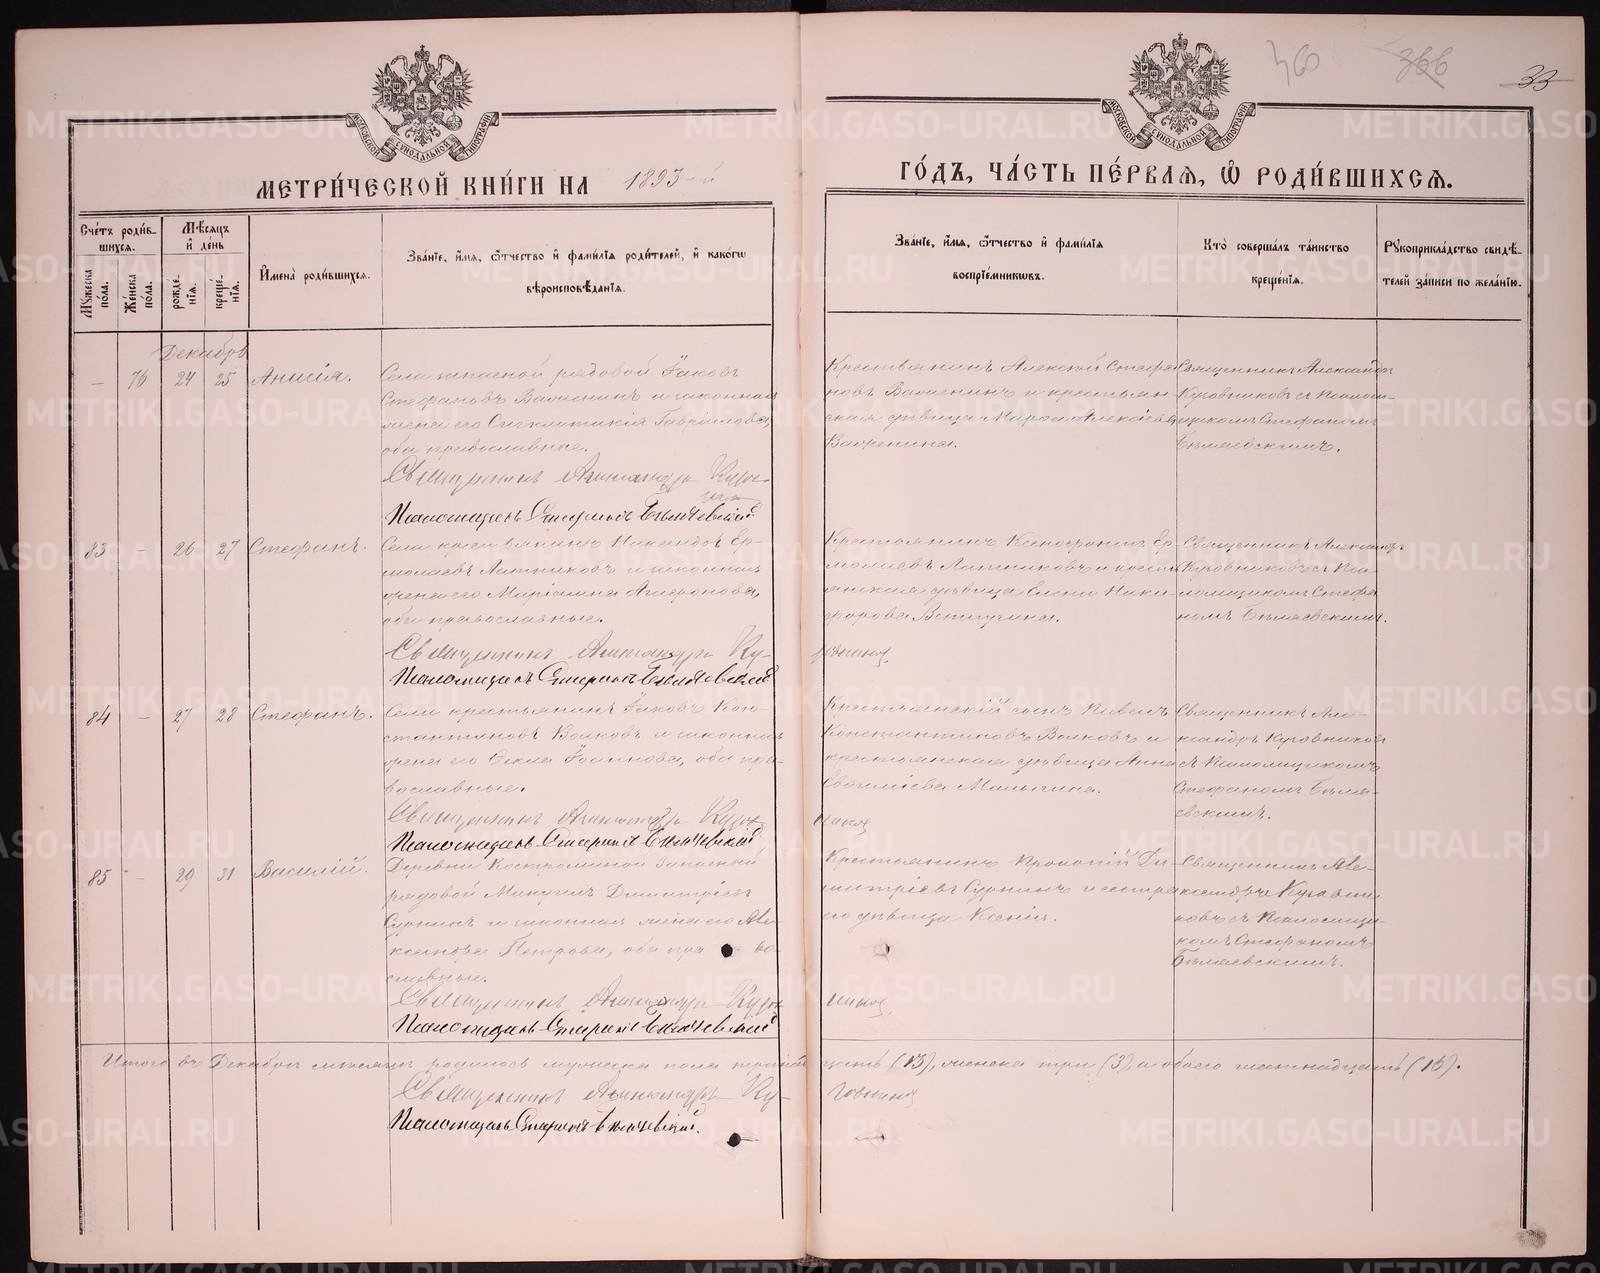 460 366 33
МОСКОВСКОЙ СѴНОДАЛЬНОЙ ТИПОГРАФІИ
МОСКОВСКОЙ СѴНОДАЛЬНОЙ ТИПОГРАФІИ
МЕТРИ́ЧЕСКОЙ КНИ́ГИ НА 1893-й
ГО́ДЪ, ЧА́СТЬ ПЕ́РВАЯ, Ѿ РОДИ́ВШИХСЯ.
Сче́тъ роди́в-
шихся.
Мꙋ́жеска по́ла.
Же́нска по́ла.
Мѣ́сяцъ
и҆ де́нь
рожде́-
нїя.
креще́-
нїя.
И҆мена̀ роди́вшихся.
Зва́нїе, и҆́мя, ѻ҆́тчество и҆ фами́лїя роди́телей, и҆ како́гѡ
вѣроисповѣ́данїя.
Зва́нїе, и҆́мя, ѻ҆́тчество и҆ фами́лїя
воспрїе́мникѡвъ.
Кто̀ соверша́лъ та́инство
креще́нїя.
Рꙋкоприкла́дство свидѣ́-
телей за́писи по жела́нїю.
Декабрь
– 76 24 25 Анисія.
Села запасной рядовой Іаковъ
Стефановъ и законная
жена его Гавріилова,
оба православные.
Священникъ Александръ Куров-
Псаломщикъ Стефанъ Бѣляевскій
Крестьянинъ Алексій Стефа-
новъ и крестьян-
ская дѣвица Алексіева
Священникъ Александръ
Куровниковъ съ псалом-
щикомъ Стефаномъ
Бѣляевскимъ.
83 – 26 27 Стефанъ.
Села крестьянинъ Никандръ Ер-
молаевъ и законная
жена его
оба православные.
Священникъ Александръ Ку-
Псаломщикъ Стефанъ Бѣляевскій
Крестьянинъ Ксенофонтъ Ер-
молаевъ и кресть-
янская дѣвица Елена Ники-
форова
Священникъ Александръ
Куровниковъ съ пса-
ломщикомъ Стефа-
номъ Бѣляевскимъ.
84 – 27 28 Стефанъ.
Села крестьянинъ Іаковъ Кон-
стантиновъ Волковъ и законная
жена его Ѳекла Іоаннова, оба пра-
вославные.
Священникъ Александръ Куров-
Псаломщикъ Стефанъ Бѣляевскій
Крестьянскій сынъ Павелъ
Константиновъ Волковъ и
крестьянская дѣвица Анна
Священникъ Але-
ксандръ Куровниковъ
съ Псаломщикомъ
Стефаномъ Бѣля-
евскимъ.
85 – 29 31 Василій.
Деревни Костроминой запасный
рядовой Димитріевъ
Суринъ и законная жена его Але-
ксандра Петрова, оба право-
славные.
Священникъ Александръ Куров-
никовъ
Псаломщикъ Стефанъ Бѣляевскій
Крестьянинъ Прокопій Ди-
митріевъ Суринъ и сестра
его дѣвица Ксенія.
Священникъ Але-
ксандръ Куровни-
ковъ съ Псаломщи-
комъ Стефаномъ
Бѣляевскимъ.
Итого въ Декабрѣ мѣсяцѣ родилось мужеска пола тринад-
цать (13), женска три (3), а обоего шестнадцать (16).
Священникъ Александръ Ку-
ровниковъ
Псаломщикъ Стефанъ Бѣляевскій.
METRIKI.GASO-URAL.RU